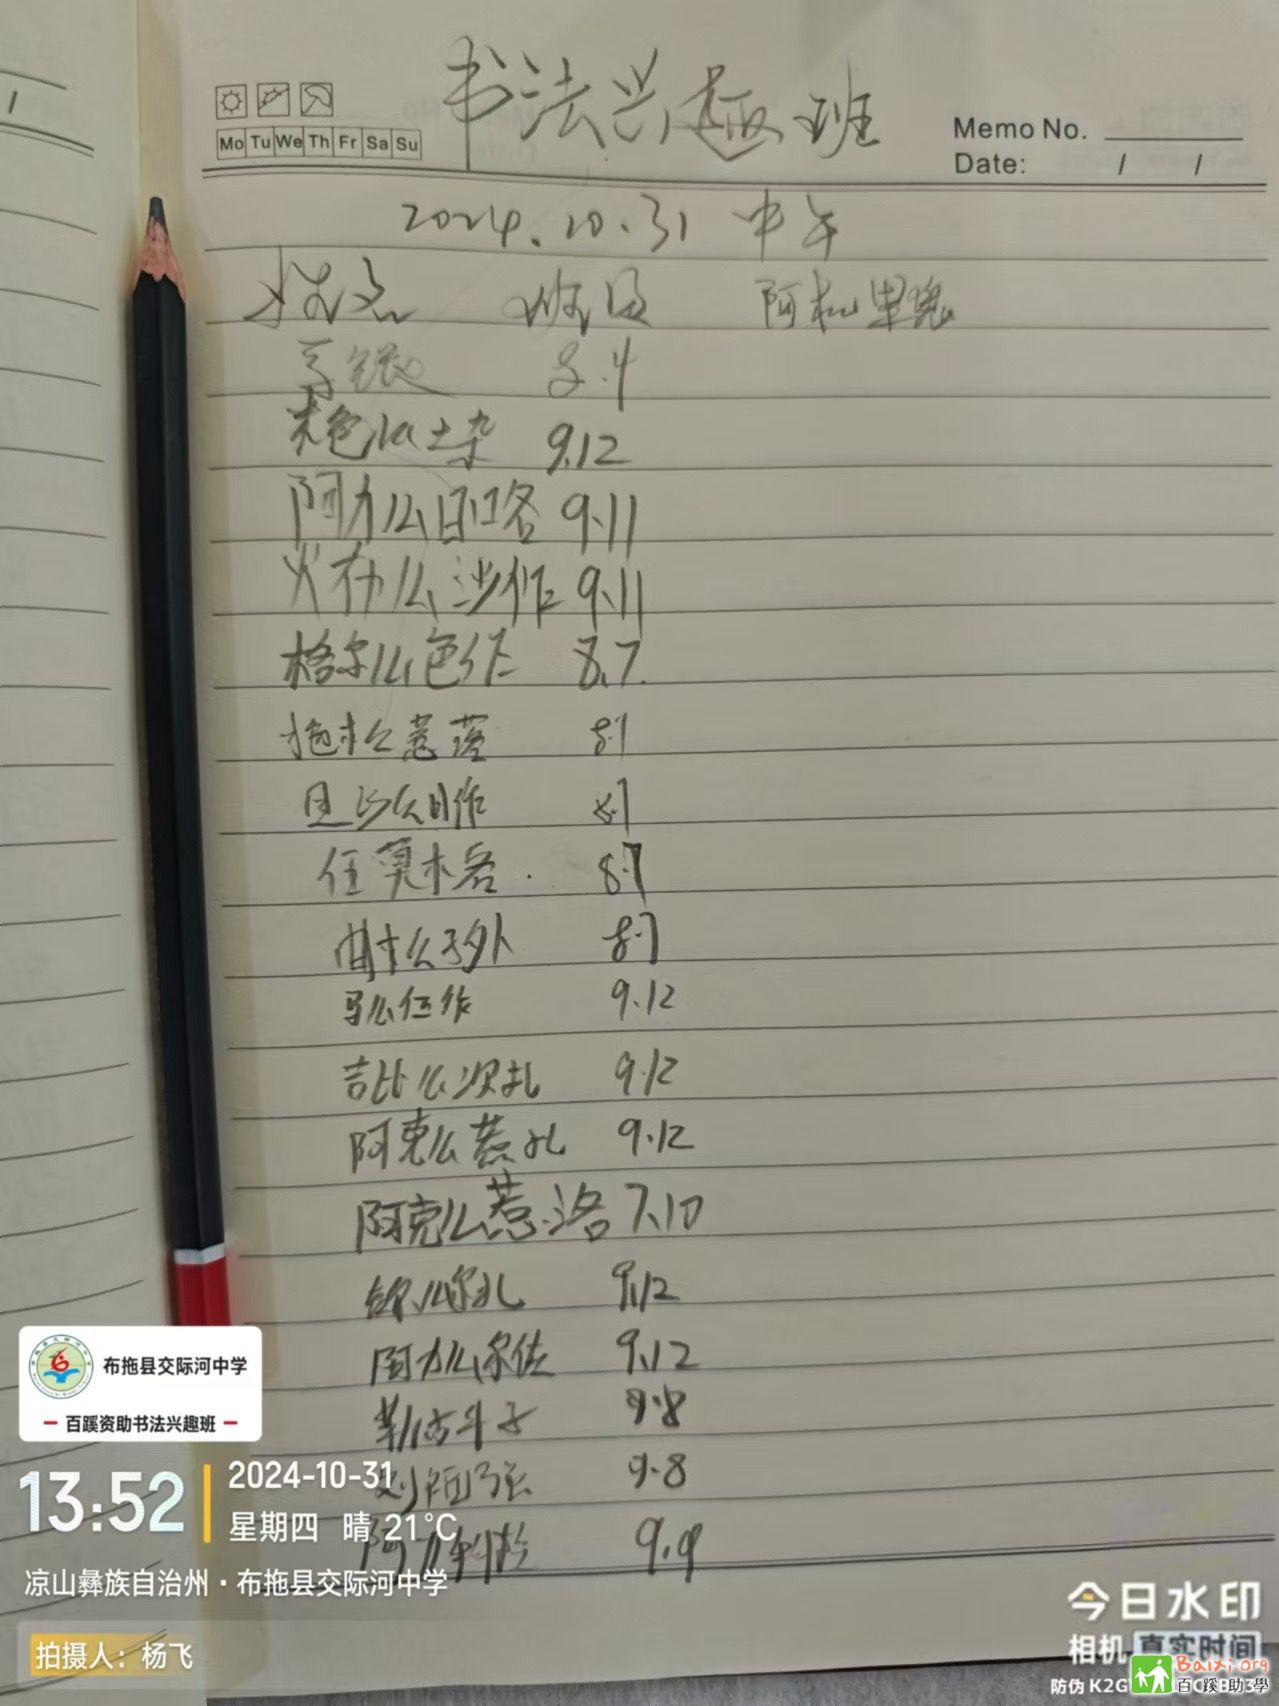 书法兴趣班
Mo Tu We Th Fr Sa Su
Memo No.
Date: / /
2024.10.31 中午
姓名 班级 阿木里鬼
8.4
9.12
阿力么日各 9.11
火布么沙作 9.11
格尔么色作 8.7
拖木么惹落 8.7
且沙么日作 8.7
任莫木各 8.7
曲木么子外 8.7
马么伍作 9.12
吉比么次扎 9.12
阿克么惹扎 9.12
阿克么惹洛 7.10
9.12
阿力么尔佐 9.12
9.8
9.8
9.9
布拖县交际河中学
百蹊资助书法兴趣班
13:52
2024-10-31
星期四 晴 21℃
凉山彝族自治州·布拖县交际河中学
拍摄人:杨飞
今日水印
相机 真实时间
防伪 K2G
Baixi.org
百蹊助學